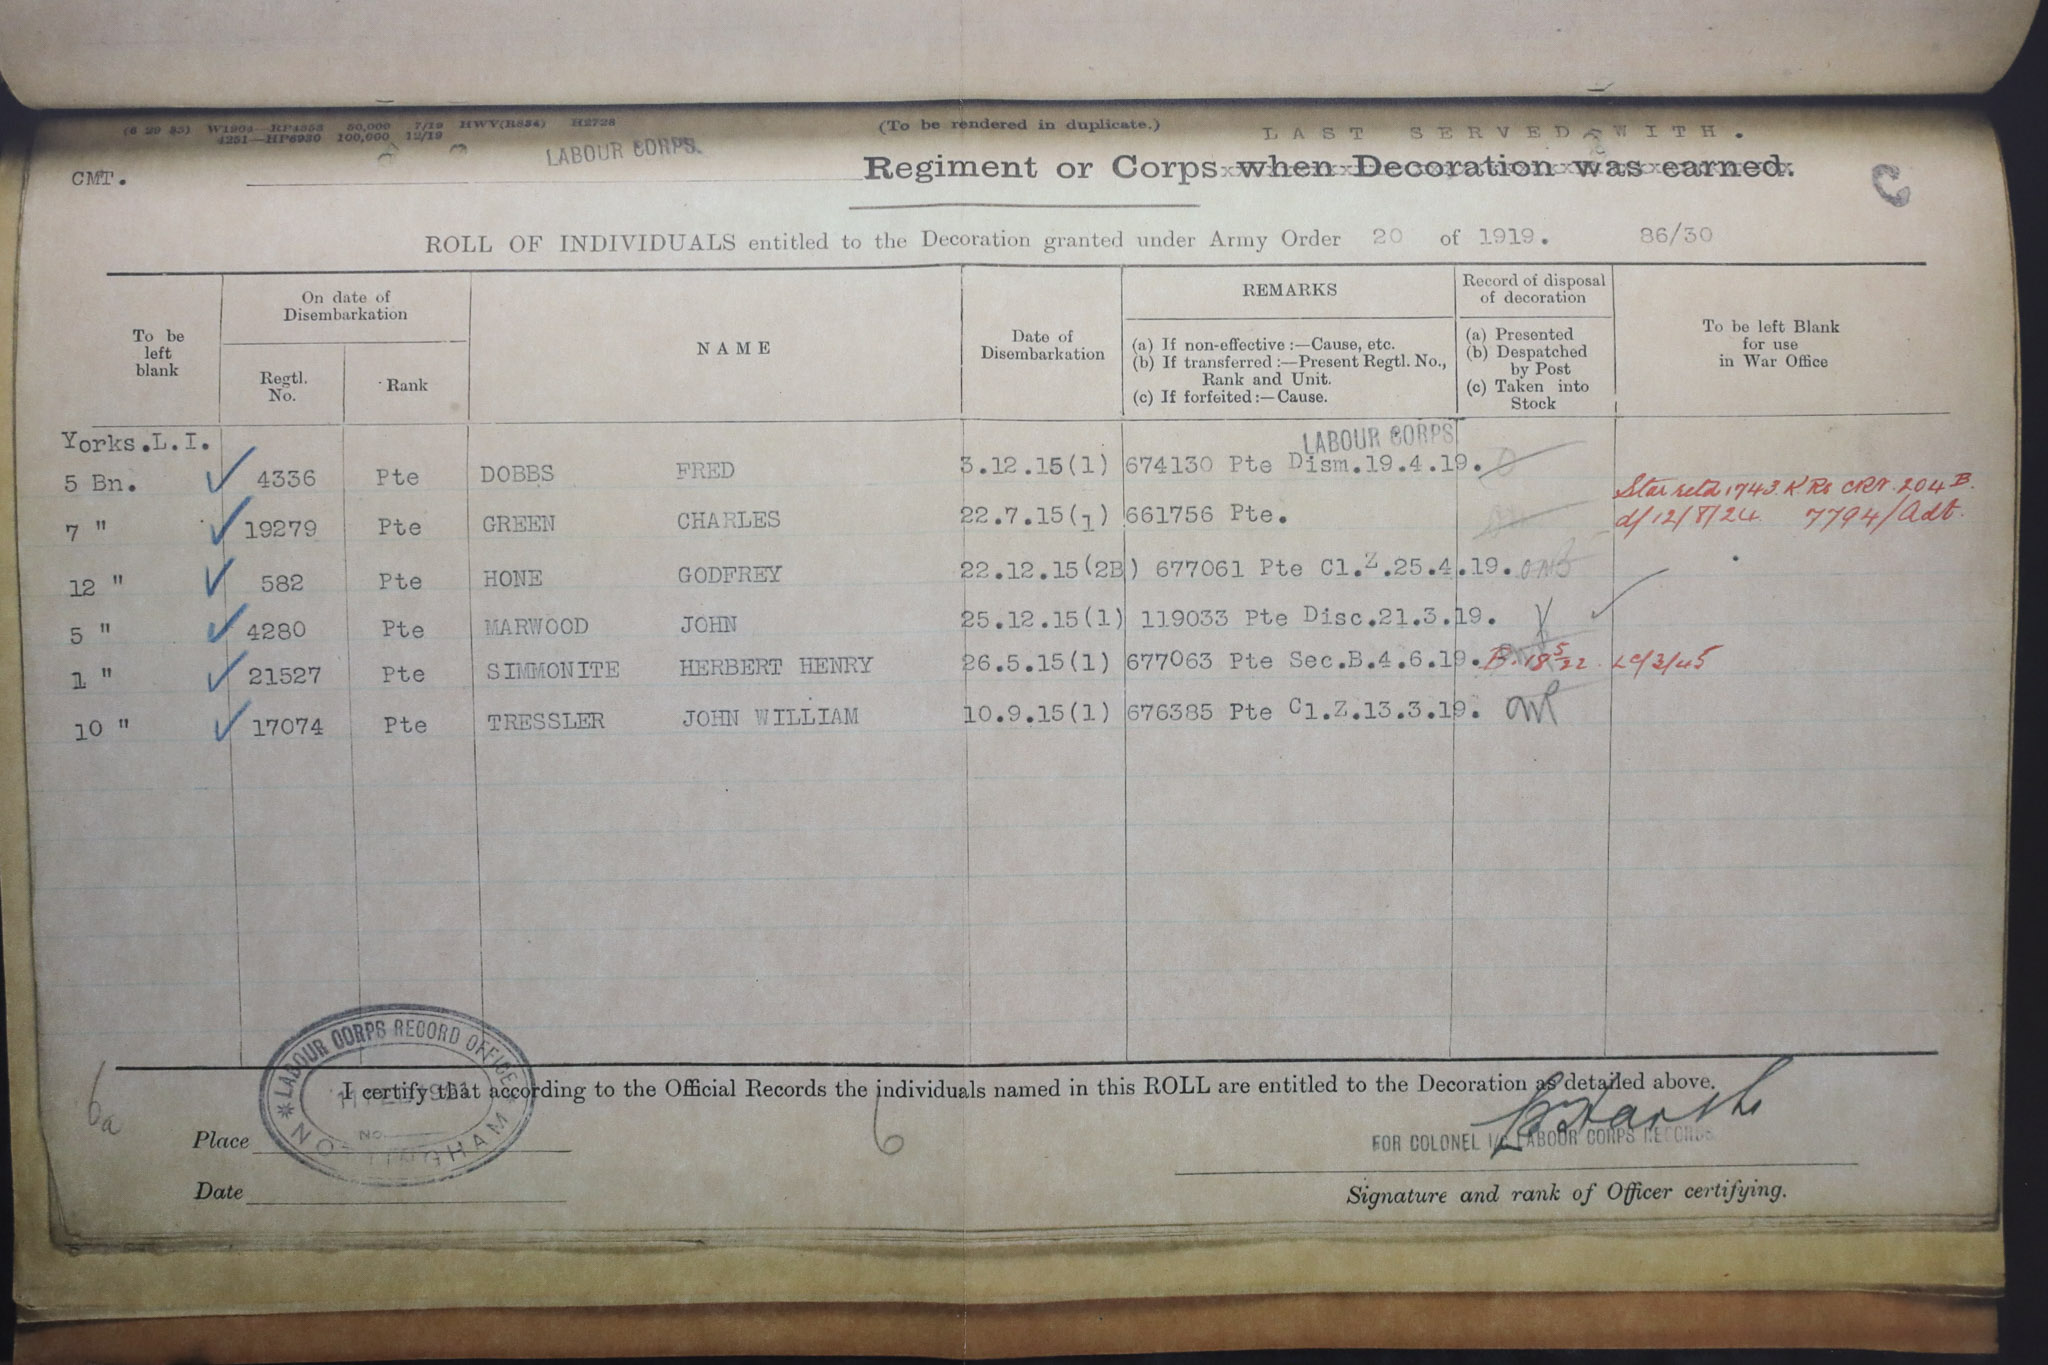 (6 29 85) W1904—RP4353 50,000 7/19 HWV(R854) H2728
4251—HP6930 100,000 12/19
(To be rendered in duplicate.)
LAST SERVED WITH.
LABOUR CORPS.
CMT.
Regiment or Corps when Decoration was earned.
C
ROLL OF INDIVIDUALS entitled to the Decoration granted under Army Order 20 of 1919. 86/30
To be left blank
On date of Disembarkation
Regtl. No.
Rank
NAME
Date of Disembarkation
REMARKS
(a) If non-effective :—Cause, etc.
(b) If transferred :—Present Regtl. No., Rank and Unit.
(c) If forfeited :—Cause.
Record of disposal of decoration
(a) Presented
(b) Despatched by Post
(c) Taken into Stock
To be left Blank for use in War Office
Yorks.L.I.
LABOUR CORPS
5 Bn. 4336 Pte DOBBS FRED 3.12.15(1) 674130 Pte Dism.19.4.19.
Star retd 1743 K Rs 204 B.
7 " 19279 Pte GREEN CHARLES 22.7.15(1) 661756 Pte.
d/12/8/24 7794/Adt.
12 " 582 Pte HONE GODFREY 22.12.15(2B) 677061 Pte Cl.Z.25.4.19.
5 " 4280 Pte MARWOOD JOHN 25.12.15(1) 119033 Pte Disc.21.3.19.
1 " 21527 Pte SIMMONITE HERBERT HENRY 26.5.15(1) 677063 Pte Sec.B.4.6.19. B. 18 5/22 LC/3/45
10 " 17074 Pte TRESSLER JOHN WILLIAM 10.9.15(1) 676385 Pte Cl.Z.13.3.19.
LABOUR CORPS RECORD OFFICE
NOTTINGHAM
No.
I certify that according to the Official Records the individuals named in this ROLL are entitled to the Decoration as detailed above.
6a
6
Place
FOR COLONEL I/C LABOUR CORPS RECORDS
Date
Signature and rank of Officer certifying.